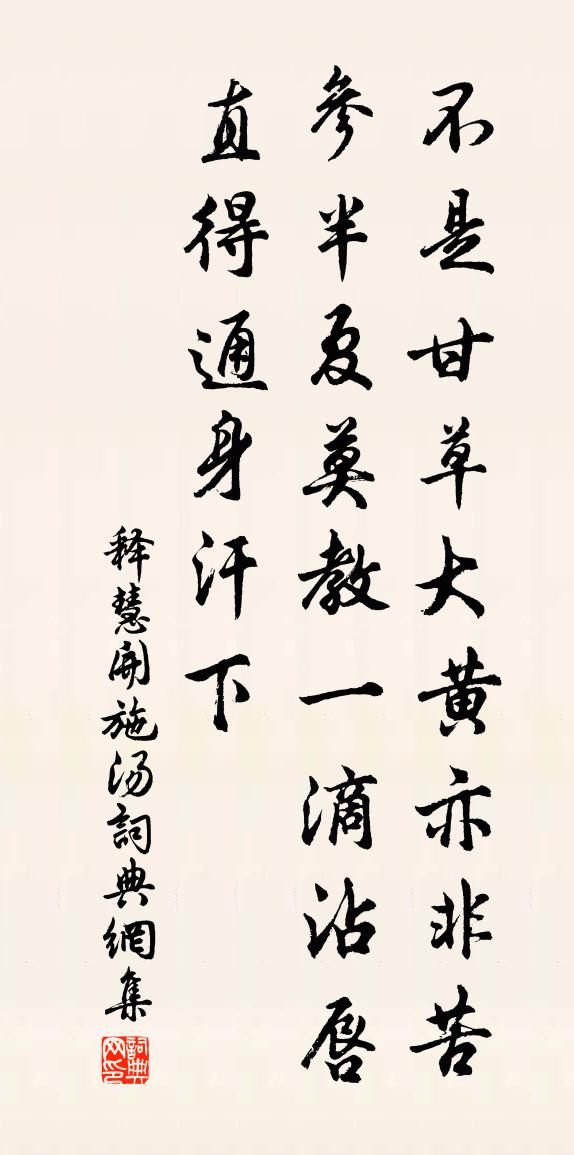 不是甘草大黄亦非苦
參半夏莫教一滴沾唇
直得通身汗下
释慧開施汤詞典網集
詞典网印